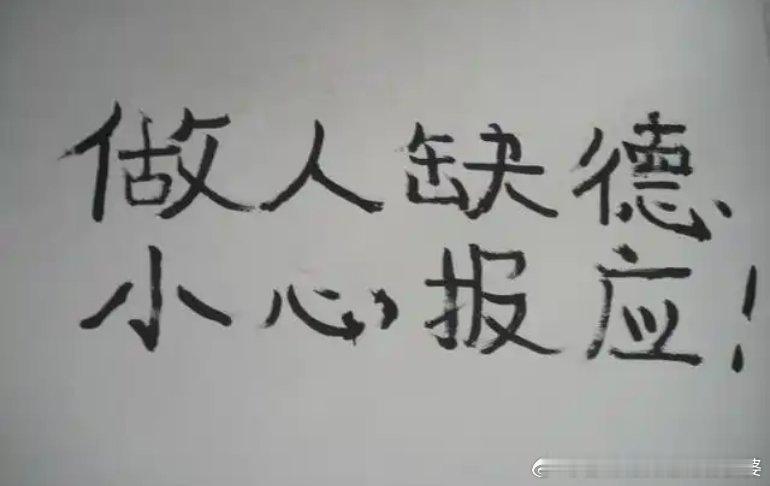 做人缺德
小心报应！